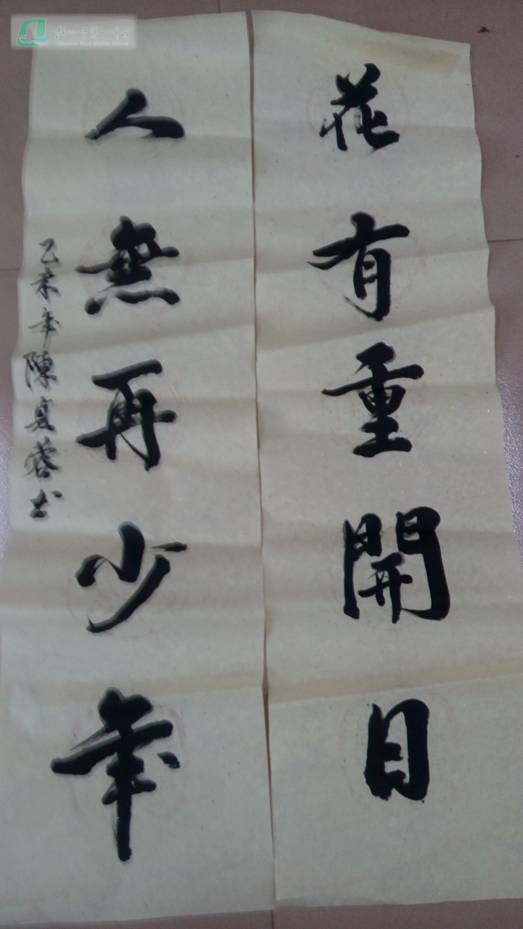 花有重開日
人無再少年
乙未年陳夏蓉书